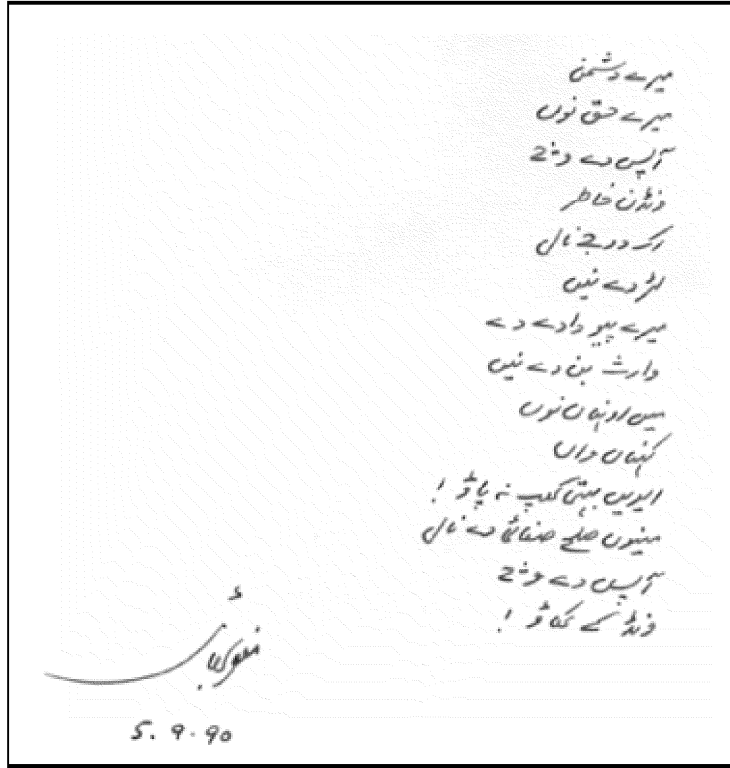 میرے دشمن
میرے حق نوں
آپس دے وچ
ونڈن خاطر
اک دوجے نال
لڑدے نیں
میرے پیو دادے دے
وارث بن دے نیں
میں اونہاں نوں
کہناں واں
ایویں بہتی کھپ نہ پاؤ !
مینوں صلح صفائی دے نال
آپس دے وچ
ونڈ کے کھاؤ !
5.9.90